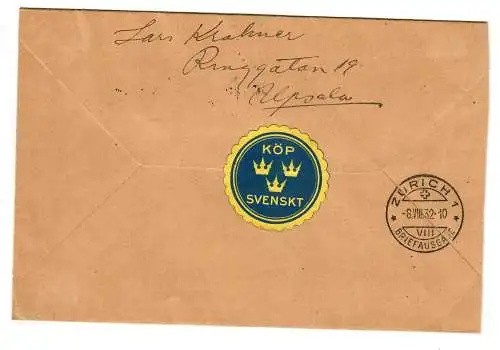 Lars Krahner
Ringgatan 19
Upsala
KÖP
SVENSKT
ZÜRICH 1
-8.VIII.32.-10
VIII
BRIEFAUSGABE